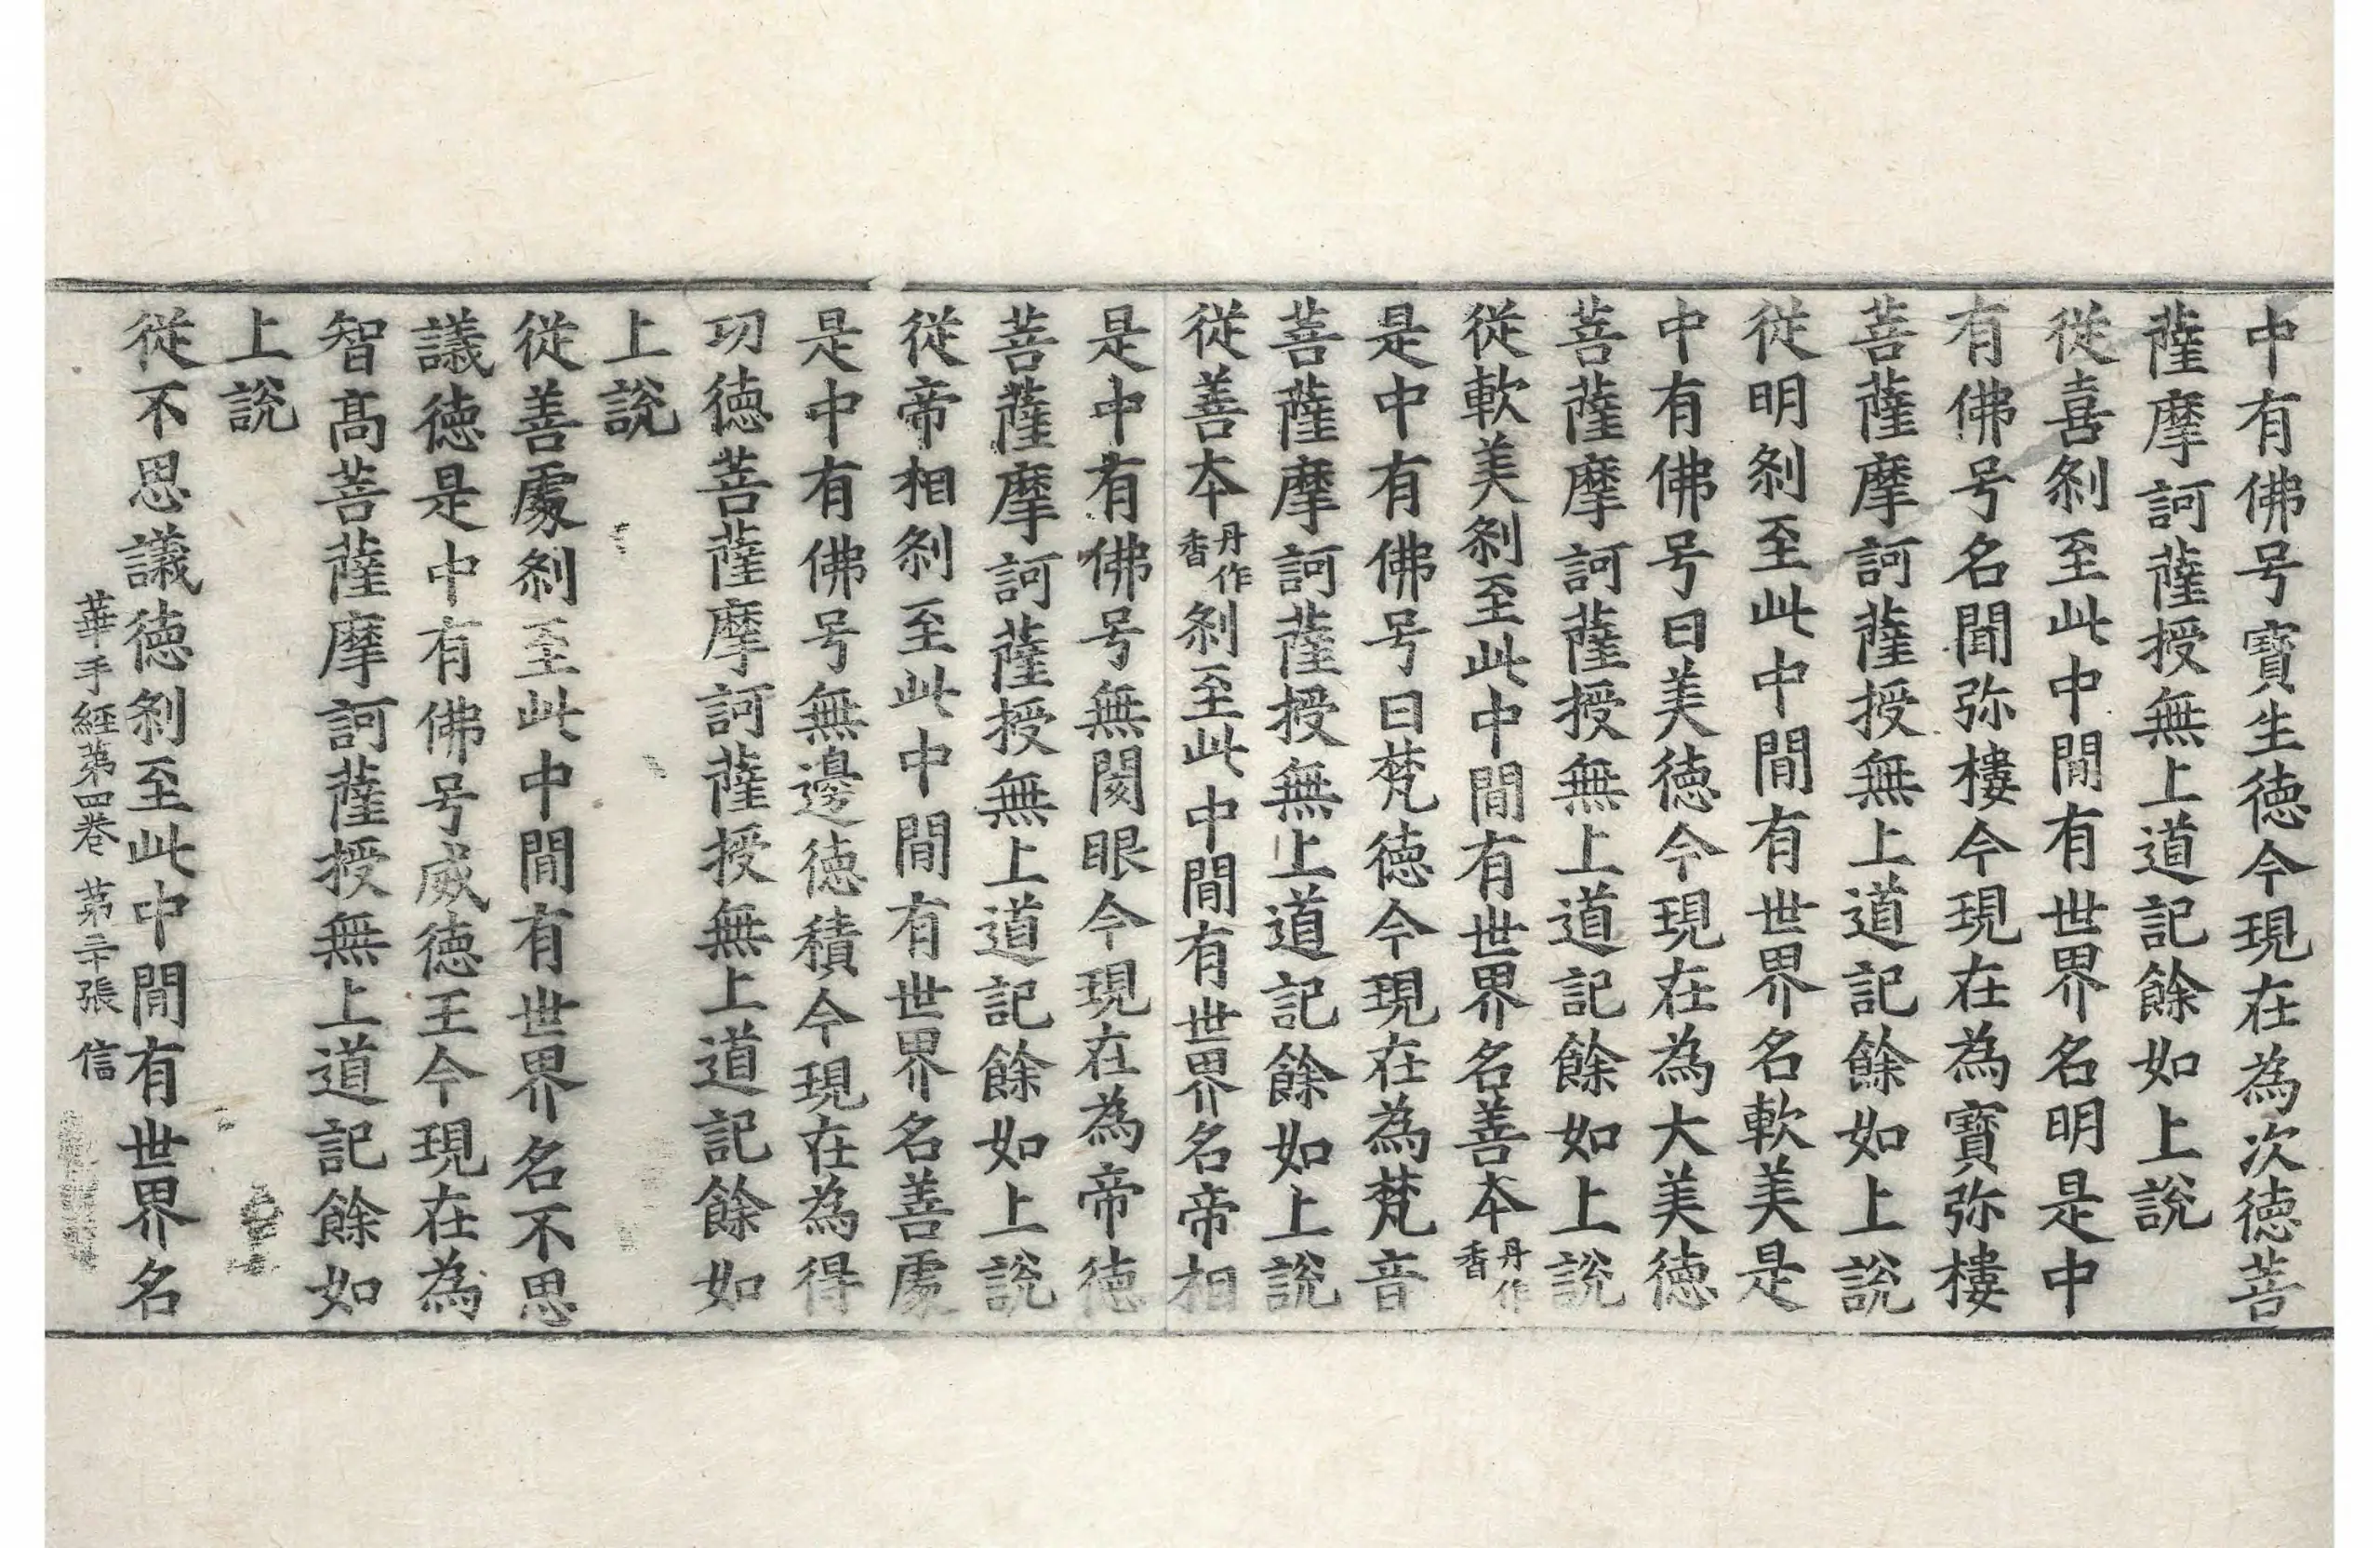 中有佛号寶生徳今現在為次徳菩
薩摩訶薩授無上道記餘如上說
從喜刹至此中閒有世界名明是中
有佛号名聞弥樓今現在為寶弥樓
菩薩摩訶薩授無上道記餘如上說
從明刹至此中閒有世界名軟美是
中有佛号曰美徳今現在為大美徳
菩薩摩訶薩授無上道記餘如上說
從軟美刹至此中閒有世界名善本丹作香
是中有佛号曰梵徳今現在為梵音
菩薩摩訶薩授無上道記餘如上說
從善本丹作香刹至此中閒有世界名帝相
是中有佛号無閡眼今現在為帝徳
菩薩摩訶薩授無上道記餘如上說
從帝相刹至此中閒有世界名善處
是中有佛号無邊徳積今現在為得
功徳菩薩摩訶薩授無上道記餘如
上說
從善處刹至此中閒有世界名不思
議徳是中有佛号威徳王今現在為
智髙菩薩摩訶薩授無上道記餘如
上說
從不思議徳刹至此中閒有世界名
華手經第四卷 第二十張 信